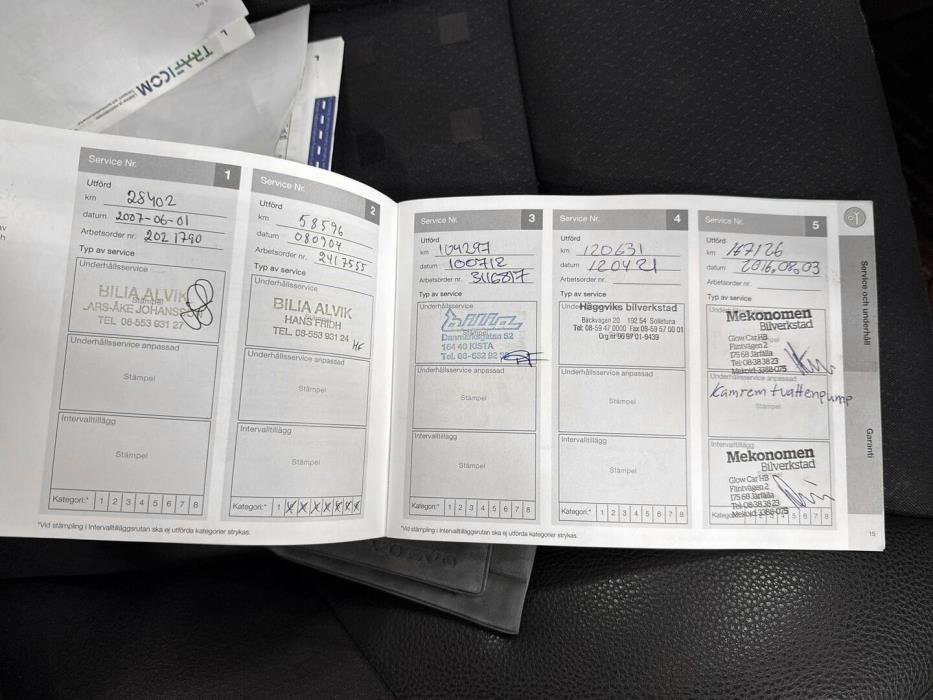 TRAFICOM
Service Nr. 1
Utförd
km 28402
datum 2007-06-01
Arbetsorder nr. 2021790
Typ av service
Underhållsservice
BILIA ALVIK
Stämpel
LARS-ÅKE JOHANS
TEL 08-553 931 27
Underhållsservice anpassad
Stämpel
Intervalltillägg
Stämpel
Kategori:* 1 2 3 4 5 6 7 8
*Vid stämpling i Intervalltilläggsrutan ska ej utförda kategorier strykas.
Service Nr. 2
Utförd
km 58596
datum 080904
Arbetsorder nr. 2417555
Typ av service
Underhållsservice
BILIA ALVIK
HANS FRIDH
TEL. 08-553 931 24
Underhållsservice anpassad
Stämpel
Intervalltillägg
Stämpel
Kategori:* 1
Service Nr. 3
Utförd
km 104297
datum 100712
Arbetsorder nr. 3116817
Typ av service
Underhållsservice
bilia
Stämpel
Danmarksgatan 52
164 40 KISTA
Tel. 08-632 92
Underhållsservice anpassad
Stämpel
Intervalltillägg
Stämpel
Kategori:* 1 2 3 4 5 6 7 8
*Vid stämpling i Intervalltilläggsrutan ska ej utförda kategorier strykas.
Service Nr. 4
Utförd
km 120631
datum 120421
Arbetsorder nr.
Typ av service
Underhållsservice
Häggviks bilverkstad
Bäckvägen 20 192 54 Sollentuna
Tel: 08-59 47 0000 Fax 08-59 57 00 01
Org nr 96 97 01-9439
Underhållsservice anpassad
Stämpel
Intervalltillägg
Stämpel
Kategori:* 1 2 3 4 5 6 7 8
Service Nr. 5
Utförd
km 167126
datum 2016,08,03
Arbetsorder nr.
Typ av service
Underhållsservice
Mekonomen
Bilverkstad
Glow Car HB
Flintvägen 2
175 68 Järfälla
Tel: 08-38 38 23
Mekoid: 3388-075
Underhållsservice anpassad
Kamrem + vattenpump
Stämpel
Intervalltillägg
Mekonomen
Bilverkstad
Glow Car HB
Flintvägen 2
175 68 Järfälla
Tel: 08-38 38 23
Mekoid: 3388-075
Service och underhåll
Garanti
15